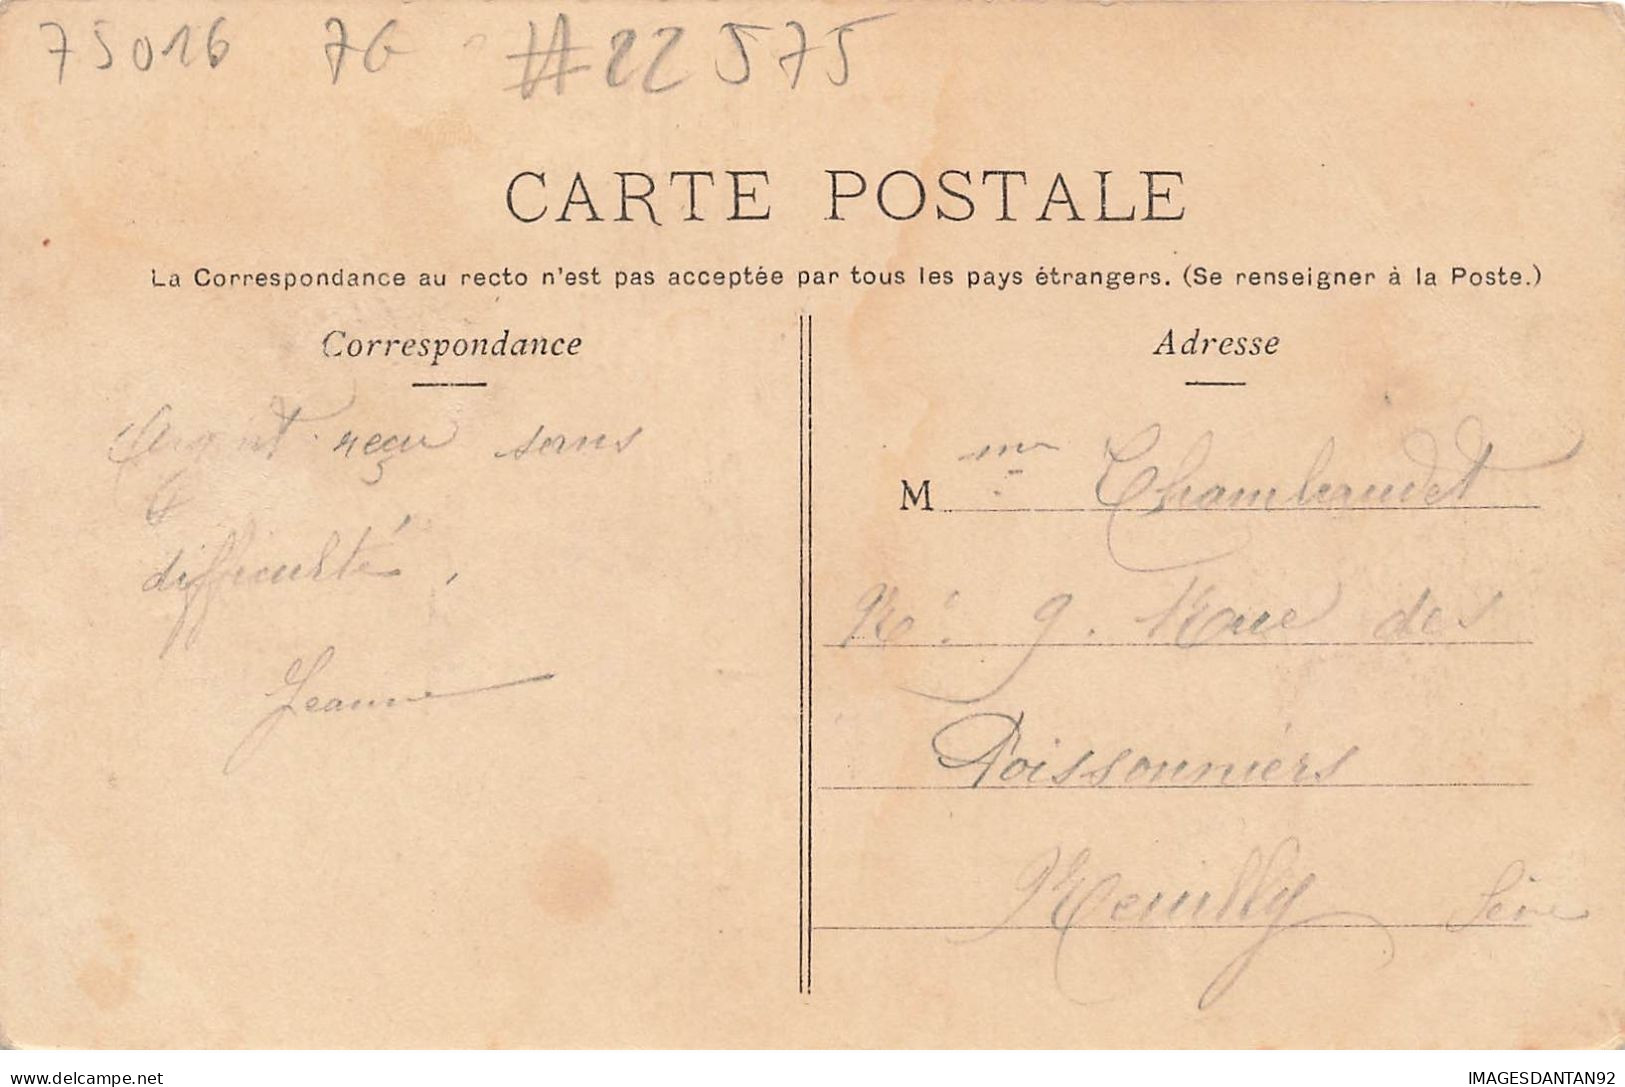 75016 7G #22575
CARTE POSTALE
La Correspondance au recto n'est pas acceptée par tous les pays étrangers. (Se renseigner à la Poste.)
Correspondance
Argent reçu sans
difficulté.
Jeanne
Adresse
Mme Chambaudet
No. 9. Rue des
Poissonniers
Neuilly Seine
delcampe.net
IMAGESDANTAN92